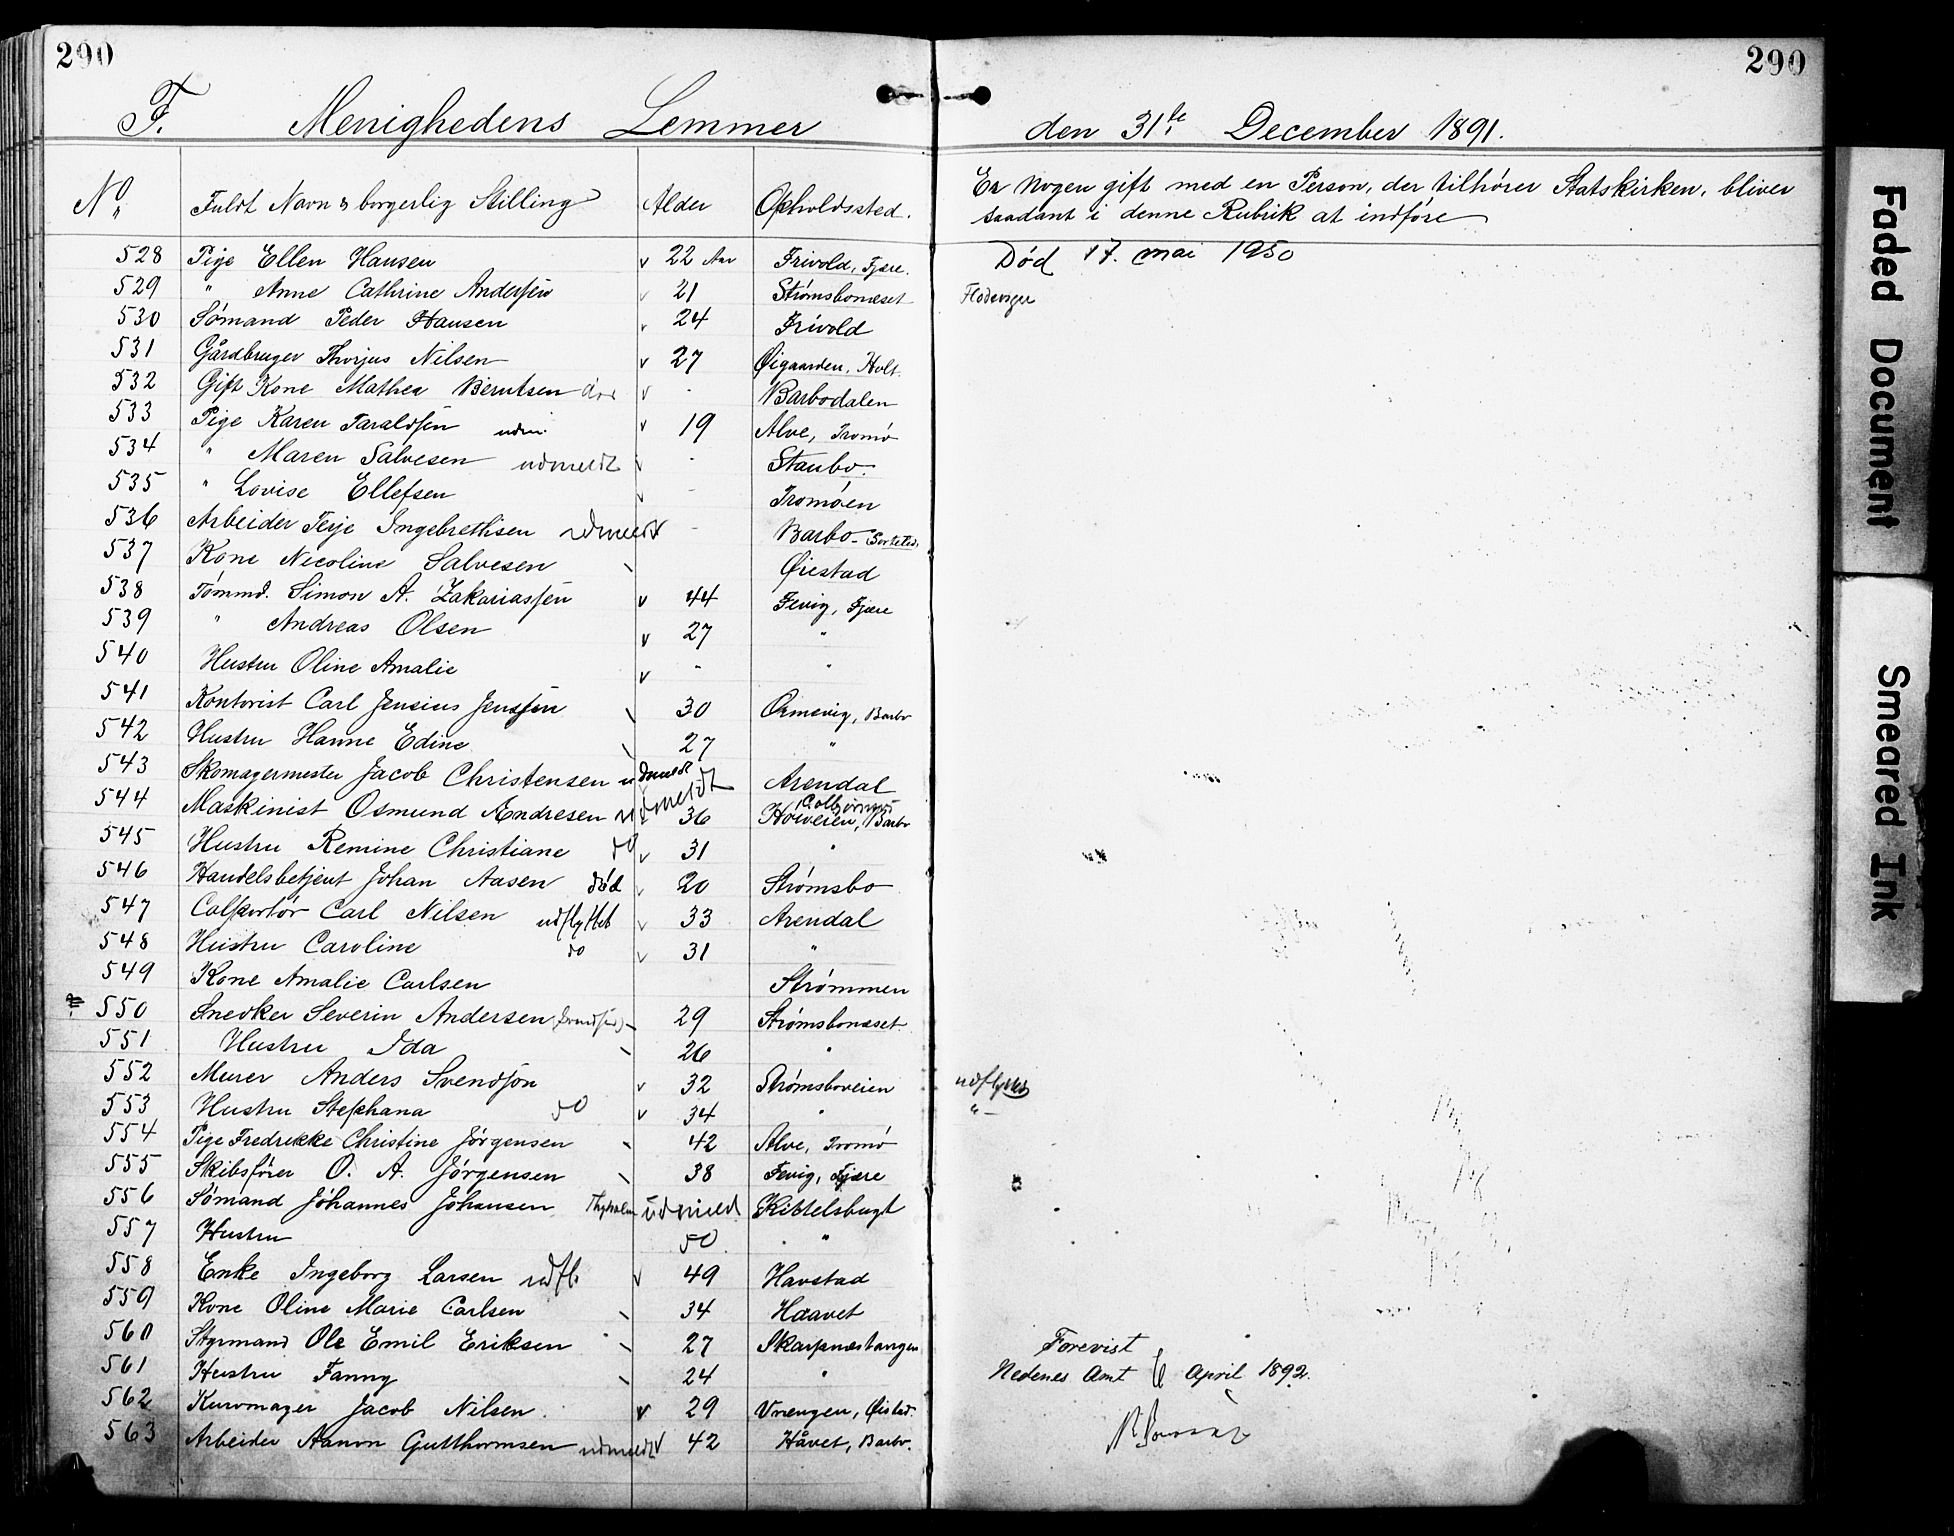 290
290
F. Menighedens Lemmer den 31te December 1891.
No. Fuldt Navn & borgerlig Stilling Alder Opholdssted. Er Nogen gift med en Person, der tilhører Statskirken, bliver
saadant i denne Rubrik at indføre
528 Pige Ellen Hansen v 22 Aar Frivold, Fjære. Død 17. mai 1950
529 " Anne Cathrine Andersen v 21 Strømsbonæset Flodevigen
530 Sømand Peder Hansen v 24 Frivold
531 Gårdbruger Thorjus Nilsen v 27 Øigaarden, Holt.
532 Gift Kone Mathea Berntsen v - Barbodalen
533 Pige Karen Taraldsen udm. v 19 Alve, Tromø
534 " Maren Salvesen udmeldt v - Staubo.
535 " Lovise Ellefsen v - Tromøen
536 Arbeider Terje Ingebrethsen udmeldt - Barbo-
537 Kone Nicoline Salvesen Øiestad
538 Tømmd. Simon A. Zakariassen v 44 Fevig, Fjære
539 " Andreas Olsen v 27 "
540 Hustru Oline Amalie v - "
541 Kontorist Carl Jensius Jenssen 30 Ormevig, Barbo
542 Hustru Hanne Edine 27 "
543 Skomagermester Jacob Christensen udmeldt Arendal
544 Maskinist Osmund Andresen udmeldt 36 Colbjørnsv Barbo
545 Hustru Remine Christiane do v 31 "
546 Handelsbetjent Johan Aasen død v 20 Strømsbo
547 Colportør Carl Nilsen udflyttet v 33 Arendal
548 Hustru Caroline do v 31 "
549 Kone Amalie Carlsen Strømmen
550 Snedker Severin Andersen 29 Strømsbonæset
551 Hustru Ida 26 "
552 Murer Anders Svendsøn v 32 Strømsboveien udflyttet
553 Hustru Stephana do v 34 " " -
554 Pige Fredrikke Christine Jørgensen 42 Alve, Tromø
555 Skibsfører O. A. Jørgensen 38 Fevig, Fjære
556 Sømand Johannes Johansen Thyholm udmeld. Kittelsbugt
557 Hustru do. "
558 Enke Ingeborg Larsen udfl. v 49 Havstad
559 Kone Oline Marie Carlsen 34 Haavet
560 Styrmand Ole Emil Eriksen 27 Skarpnæstangen
561 Hustru Fanny 24 "
562 Kurvmager Jacob Nilsen. v 29 Vrengen, Øistad.
563 Arbeider Aanon Gutthormsen udmeldt v 42 Håvet, Barbo.
Forevist
Nedenes Amt 6 April 1892.
Faded Document
Smeared Ink